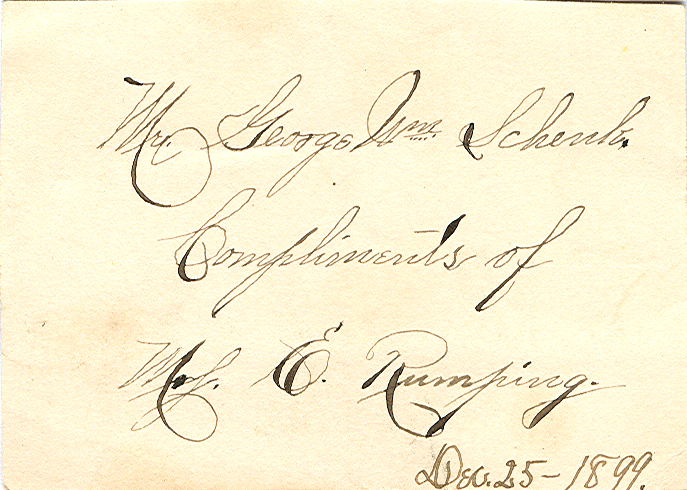 Mr. George Wm Schenk.
Compliments of
Mrs. E. Rumping.
Dec. 25 - 1899.